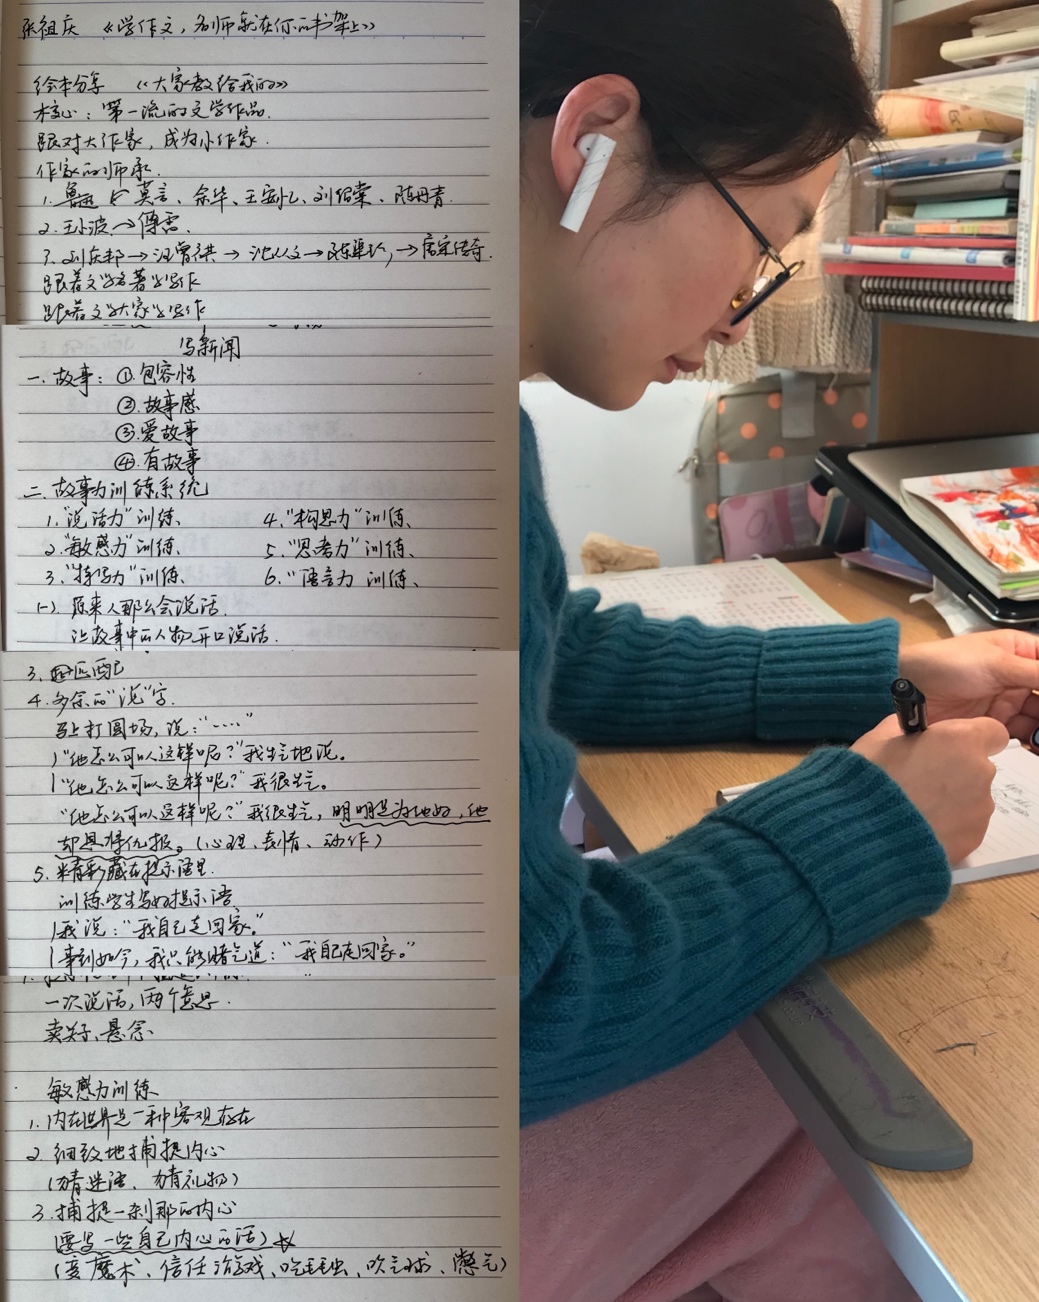 张祖庆 《学作文，名师就在你的书架上》
绘本分享 《大家教给我的》
核心：第一流的文学作品.
跟对大作家，成为小作家.
作家的师承.
1. 鲁迅 莫言、余华、王安忆、刘绍棠、陈丹青.
2. 王小波→傅雷.
3. 刘庆邦→汪曾祺→沈从文→→唐宋传奇.
跟着文学名著学写作
跟着文学大家学写作
写新闻
一. 故事：①.包容性
②.故事感
③.爱故事
④.有故事
二. 故事力训练系统
1."说话力"训练、 4."构思力"训练、
2."敏感力"训练、 5."思考力"训练、
3."特写力"训练、 6."语言力 训练、
(一). 原来人那么会说话.
让故事中的人物开口说话.
3. 匹配
4. 多余的"说"字.
马上打圆场，说："……"
"他怎么可以这样呢？"我生气地说。
"他怎么可以这样呢？"我很生气。
"他怎么可以这样呢？"我很生气，明明是为他好，他
却恩将仇报。(心理、表情、动作)
5. 精彩藏在提示语里.
训练学生写好提示语、
我说："我自己走回家。"
事到如今，我只能赌气道："我自己走回家。"
一次说话，两个意思.
卖关子、悬念
敏感力训练
1. 内在世界是一种客观存在
2. 细致地捕捉内心
(猜谜语、猜礼物)
3. 捕捉一刹那的内心
(要写一些自己内心的话)
(变魔术、信任游戏、吃毛毛虫、吹气球、憋气)